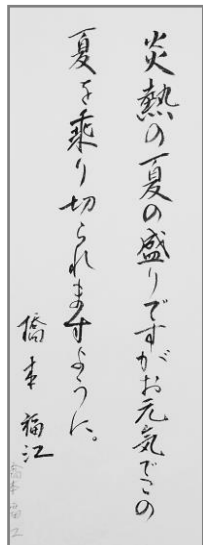 炎熱の夏の盛りですがお元気でこの
夏を乗り切られますように。
橋本福江